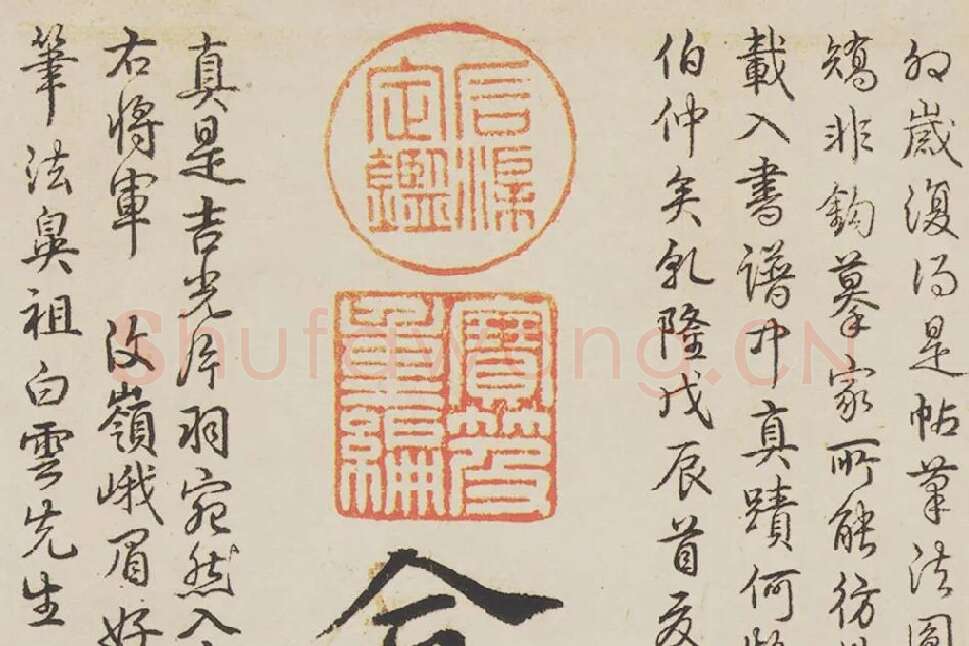 歲復得是帖筆法圓
矯非鉤摹家所能彷
載入書譜中真蹟何
伯仲矣乾隆戊辰首夏
石渠定鑑
寶笈重編
真是吉光片羽宛然入
右將軍 汶嶺峨眉好
筆法鼻祖白雲先生
Shufawang.CN